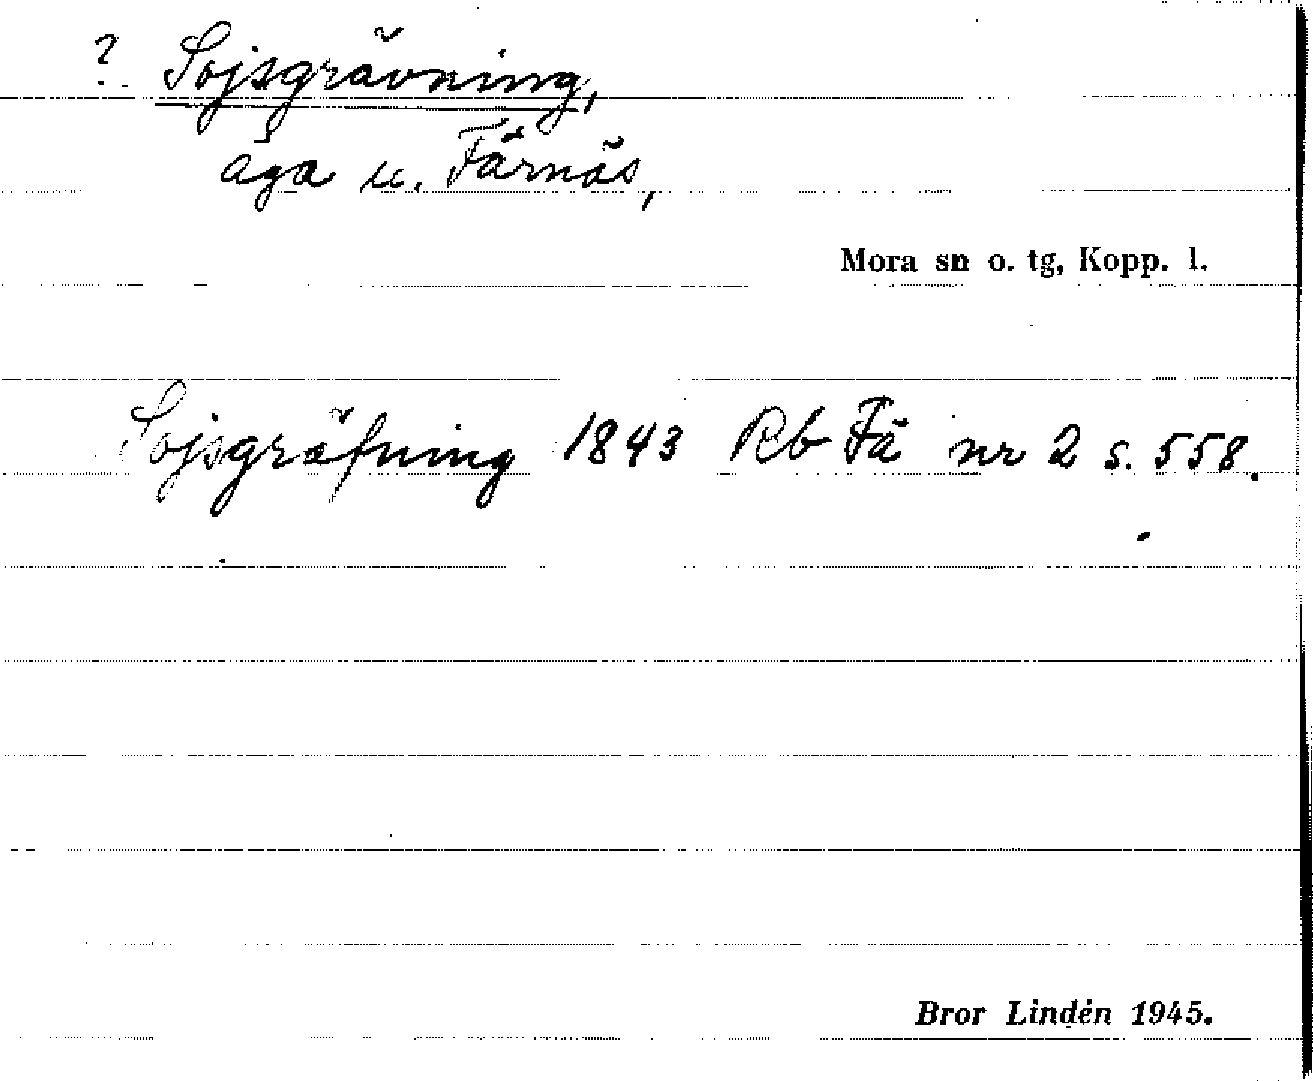 ? Sojsgrävning,
äga u. Färnäs,
Mora sn o. tg, Kopp. l.
Sojsgräfning 1843 Rb Fä nr 2 s. 558.
Bror Lindén 1945.